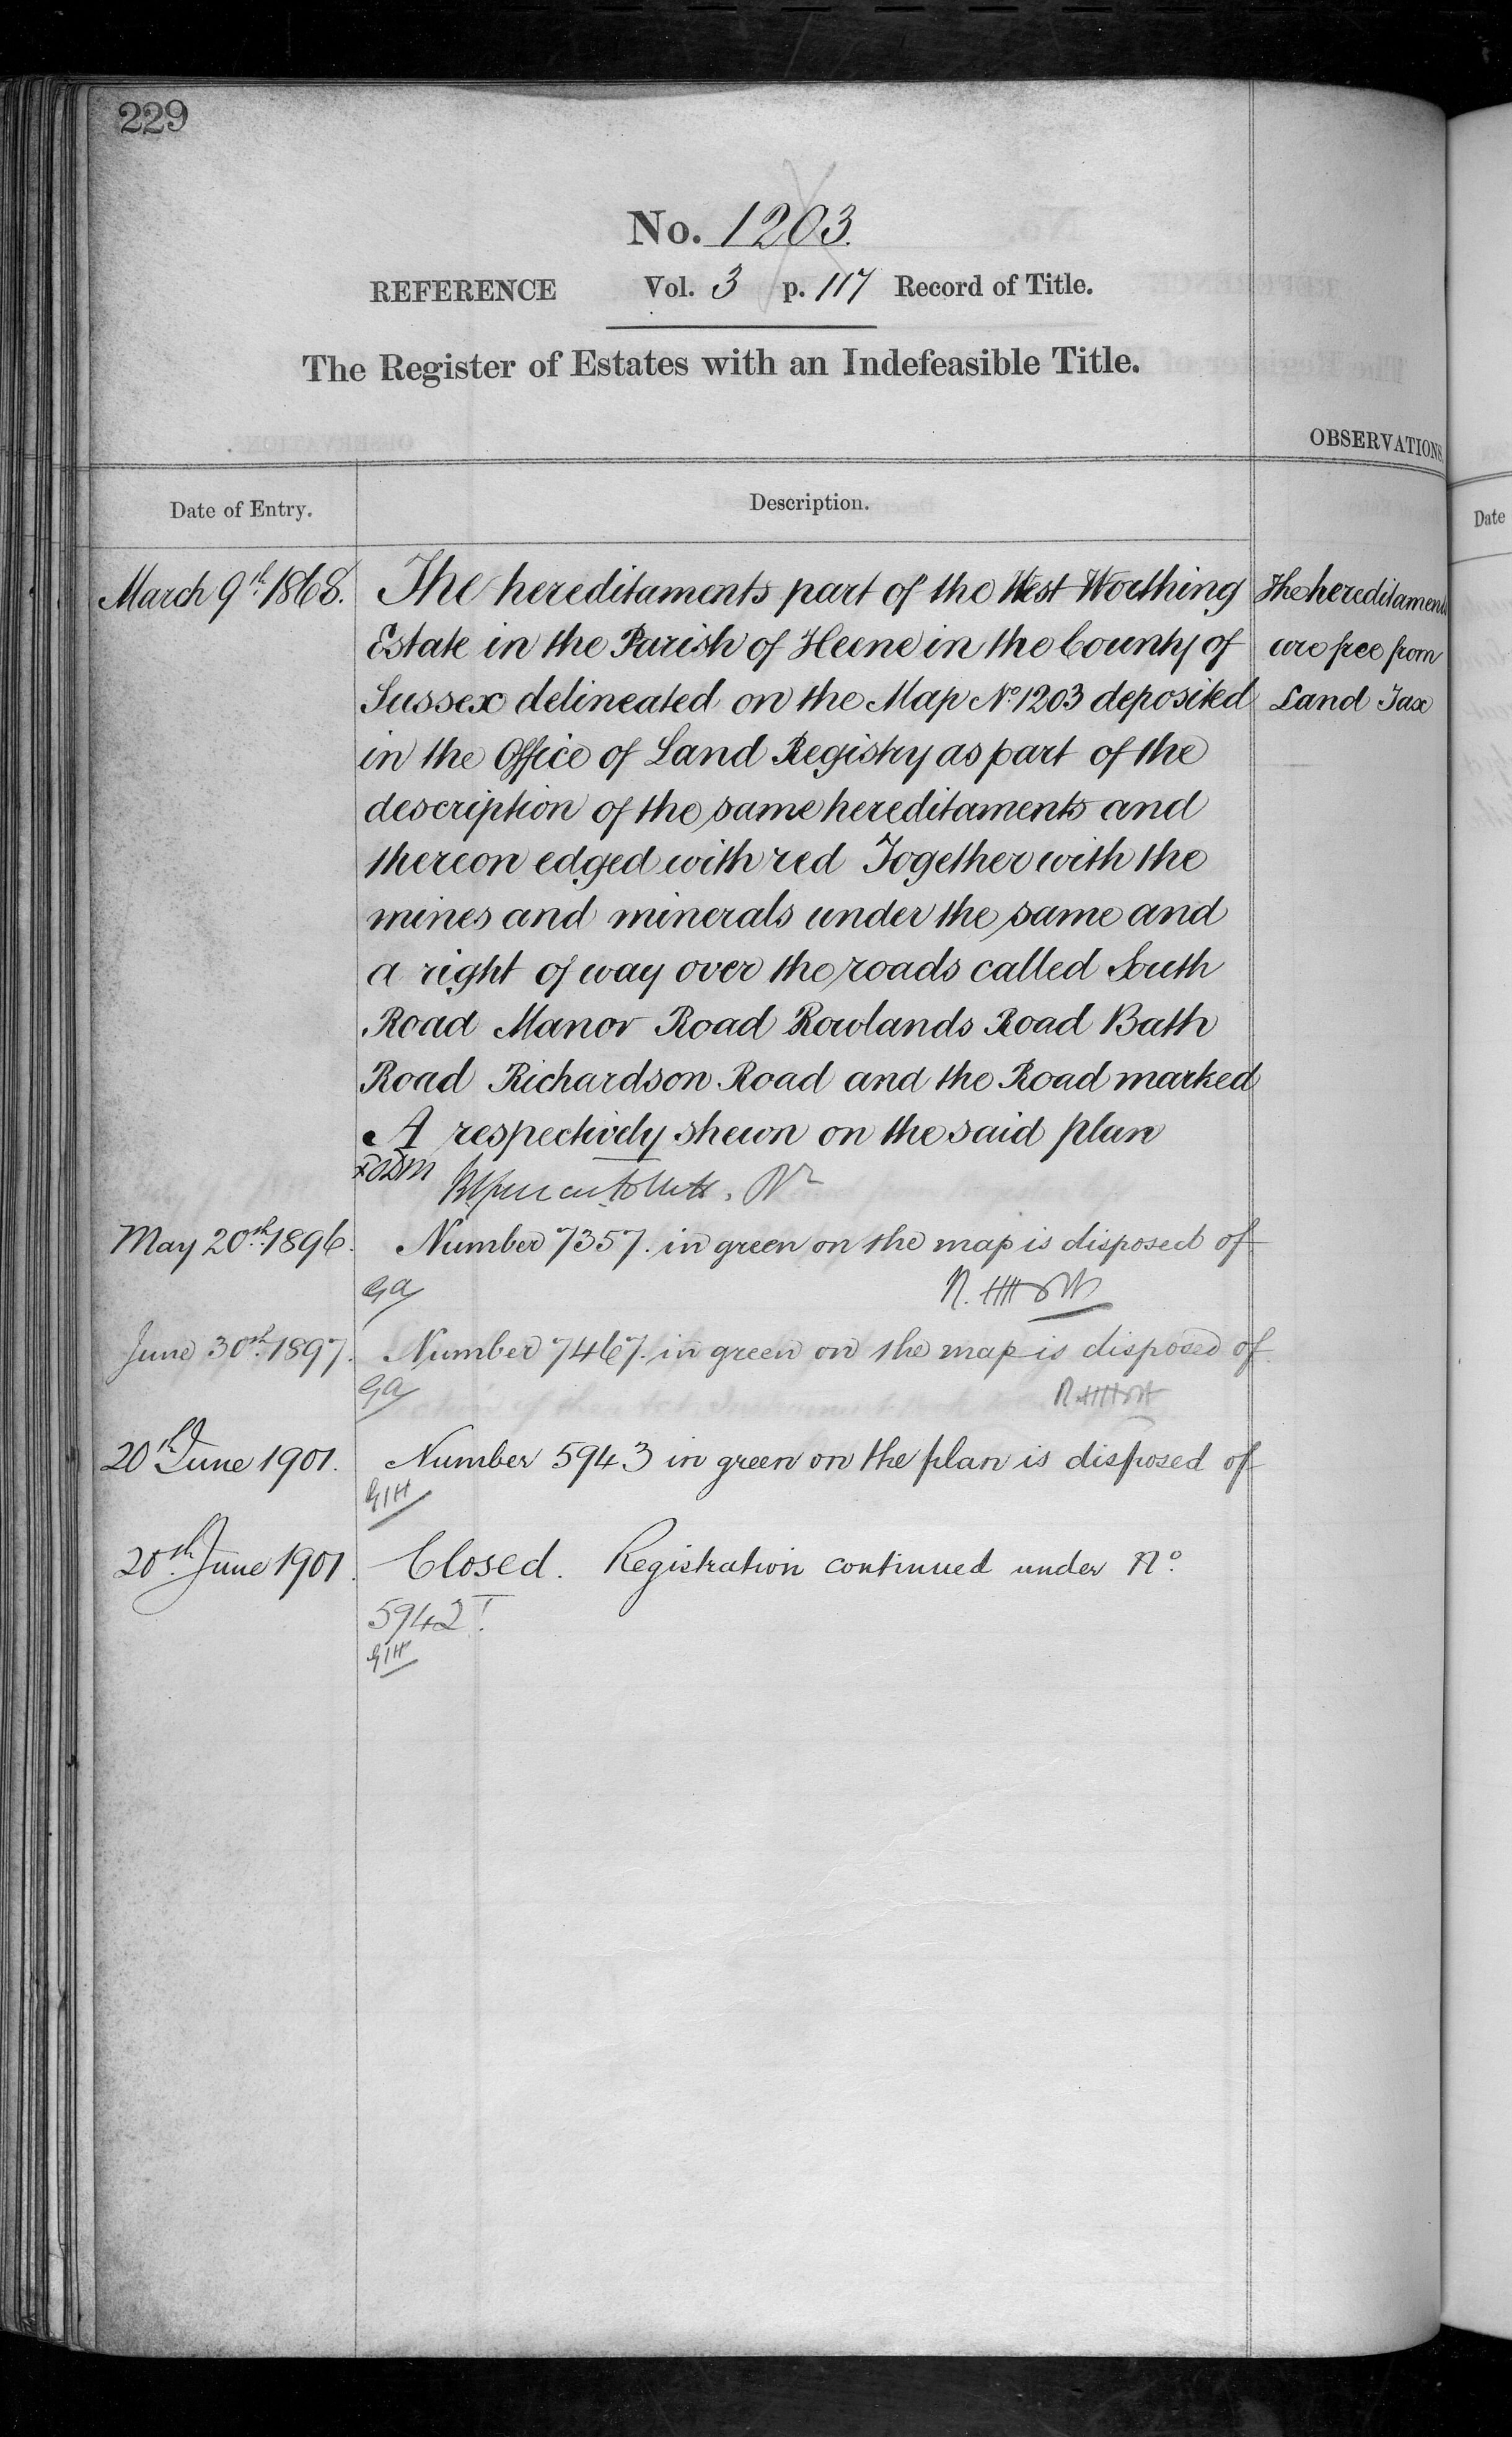 229
No. 1203
REFERENCE Vol. 3 p. 117 Record of Title.
The Register of Estates with an Indefeasible Title.
OBSERVATIONS.
Date of Entry.
Description.
Date
March 9th 1868. The hereditaments part of the West Worthing
Estate in the Parish of Heene in the County of
Sussex delineated on the Map No. 1203 deposited
in the Office of Land Registry as part of the
description of the same hereditaments and
thereon edged with red Together with the
mines and minerals under the same and
a right of way over the roads called South
Road Manor Road Rowlands Road Bath
Road Richardson Road and the Road marked
A respectively shewn on the said plan
The hereditaments
are free from
Land Tax
May 20th 1896. Number 7357. in green on the map is disposed of
GA
June 30th 1897. Number 7467. in green on the map is disposed of
GA
20th June 1901. Number 5943 in green on the plan is disposed of
GIH
20th June 1901. Closed. Registration continued under No.
5942 I.
GIH